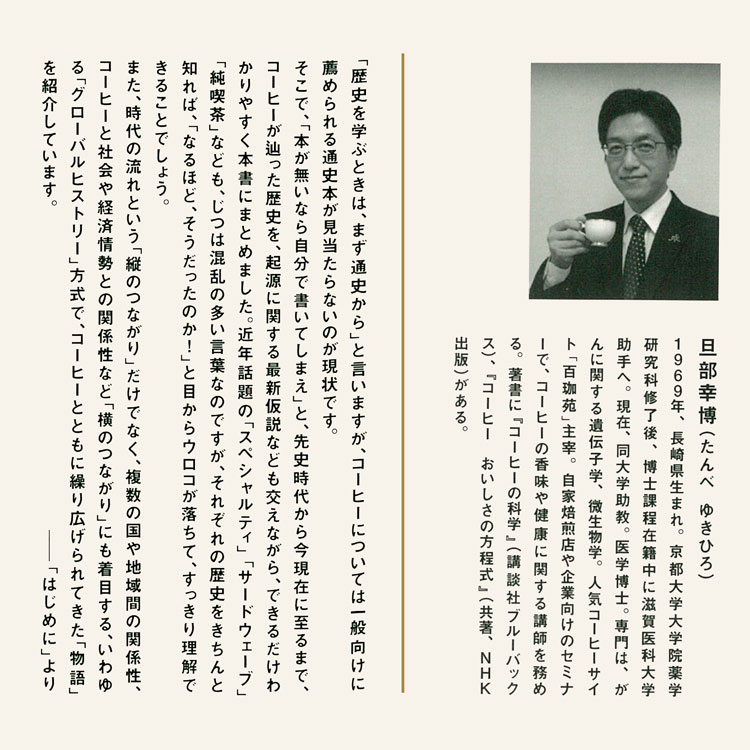 旦部幸博(たんべ ゆきひろ)
1969年、長崎県生まれ。京都大学大学院薬学
研究科修了後、博士課程在籍中に滋賀医科大学
助手へ。現在、同大学助教。医学博士。専門は、が
んに関する遺伝子学、微生物学。人気コーヒーサイ
ト「百珈苑」主宰。自家焙煎店や企業向けのセミナ
ーで、コーヒーの香味や健康に関する講師を務め
る。著書に『コーヒーの科学』(講談社ブルーバック
ス)、『コーヒー おいしさの方程式』(共著、NHK
出版)がある。
「歴史を学ぶときは、まず通史から」と言いますが、コーヒーについては一般向けに
薦められる通史本が見当たらないのが現状です。
そこで、「本が無いなら自分で書いてしまえ」と、先史時代から今現在に至るまで、
コーヒーが辿った歴史を、起源に関する最新仮説なども交えながら、できるだけわ
かりやすく本書にまとめました。近年話題の「スペシャルティ」「サードウェーブ」
「純喫茶」なども、じつは混乱の多い言葉なのですが、それぞれの歴史をきちんと
知れば、「なるほど、そうだったのか!」と目からウロコが落ちて、すっきり理解で
きることでしょう。
また、時代の流れという「縦のつながり」だけでなく、複数の国や地域間の関係性、
コーヒーと社会や経済情勢との関係性など「横のつながり」にも着目する、いわゆ
る「グローバルヒストリー」方式で、コーヒーとともに繰り広げられてきた「物語」
を紹介しています。
――「はじめに」より